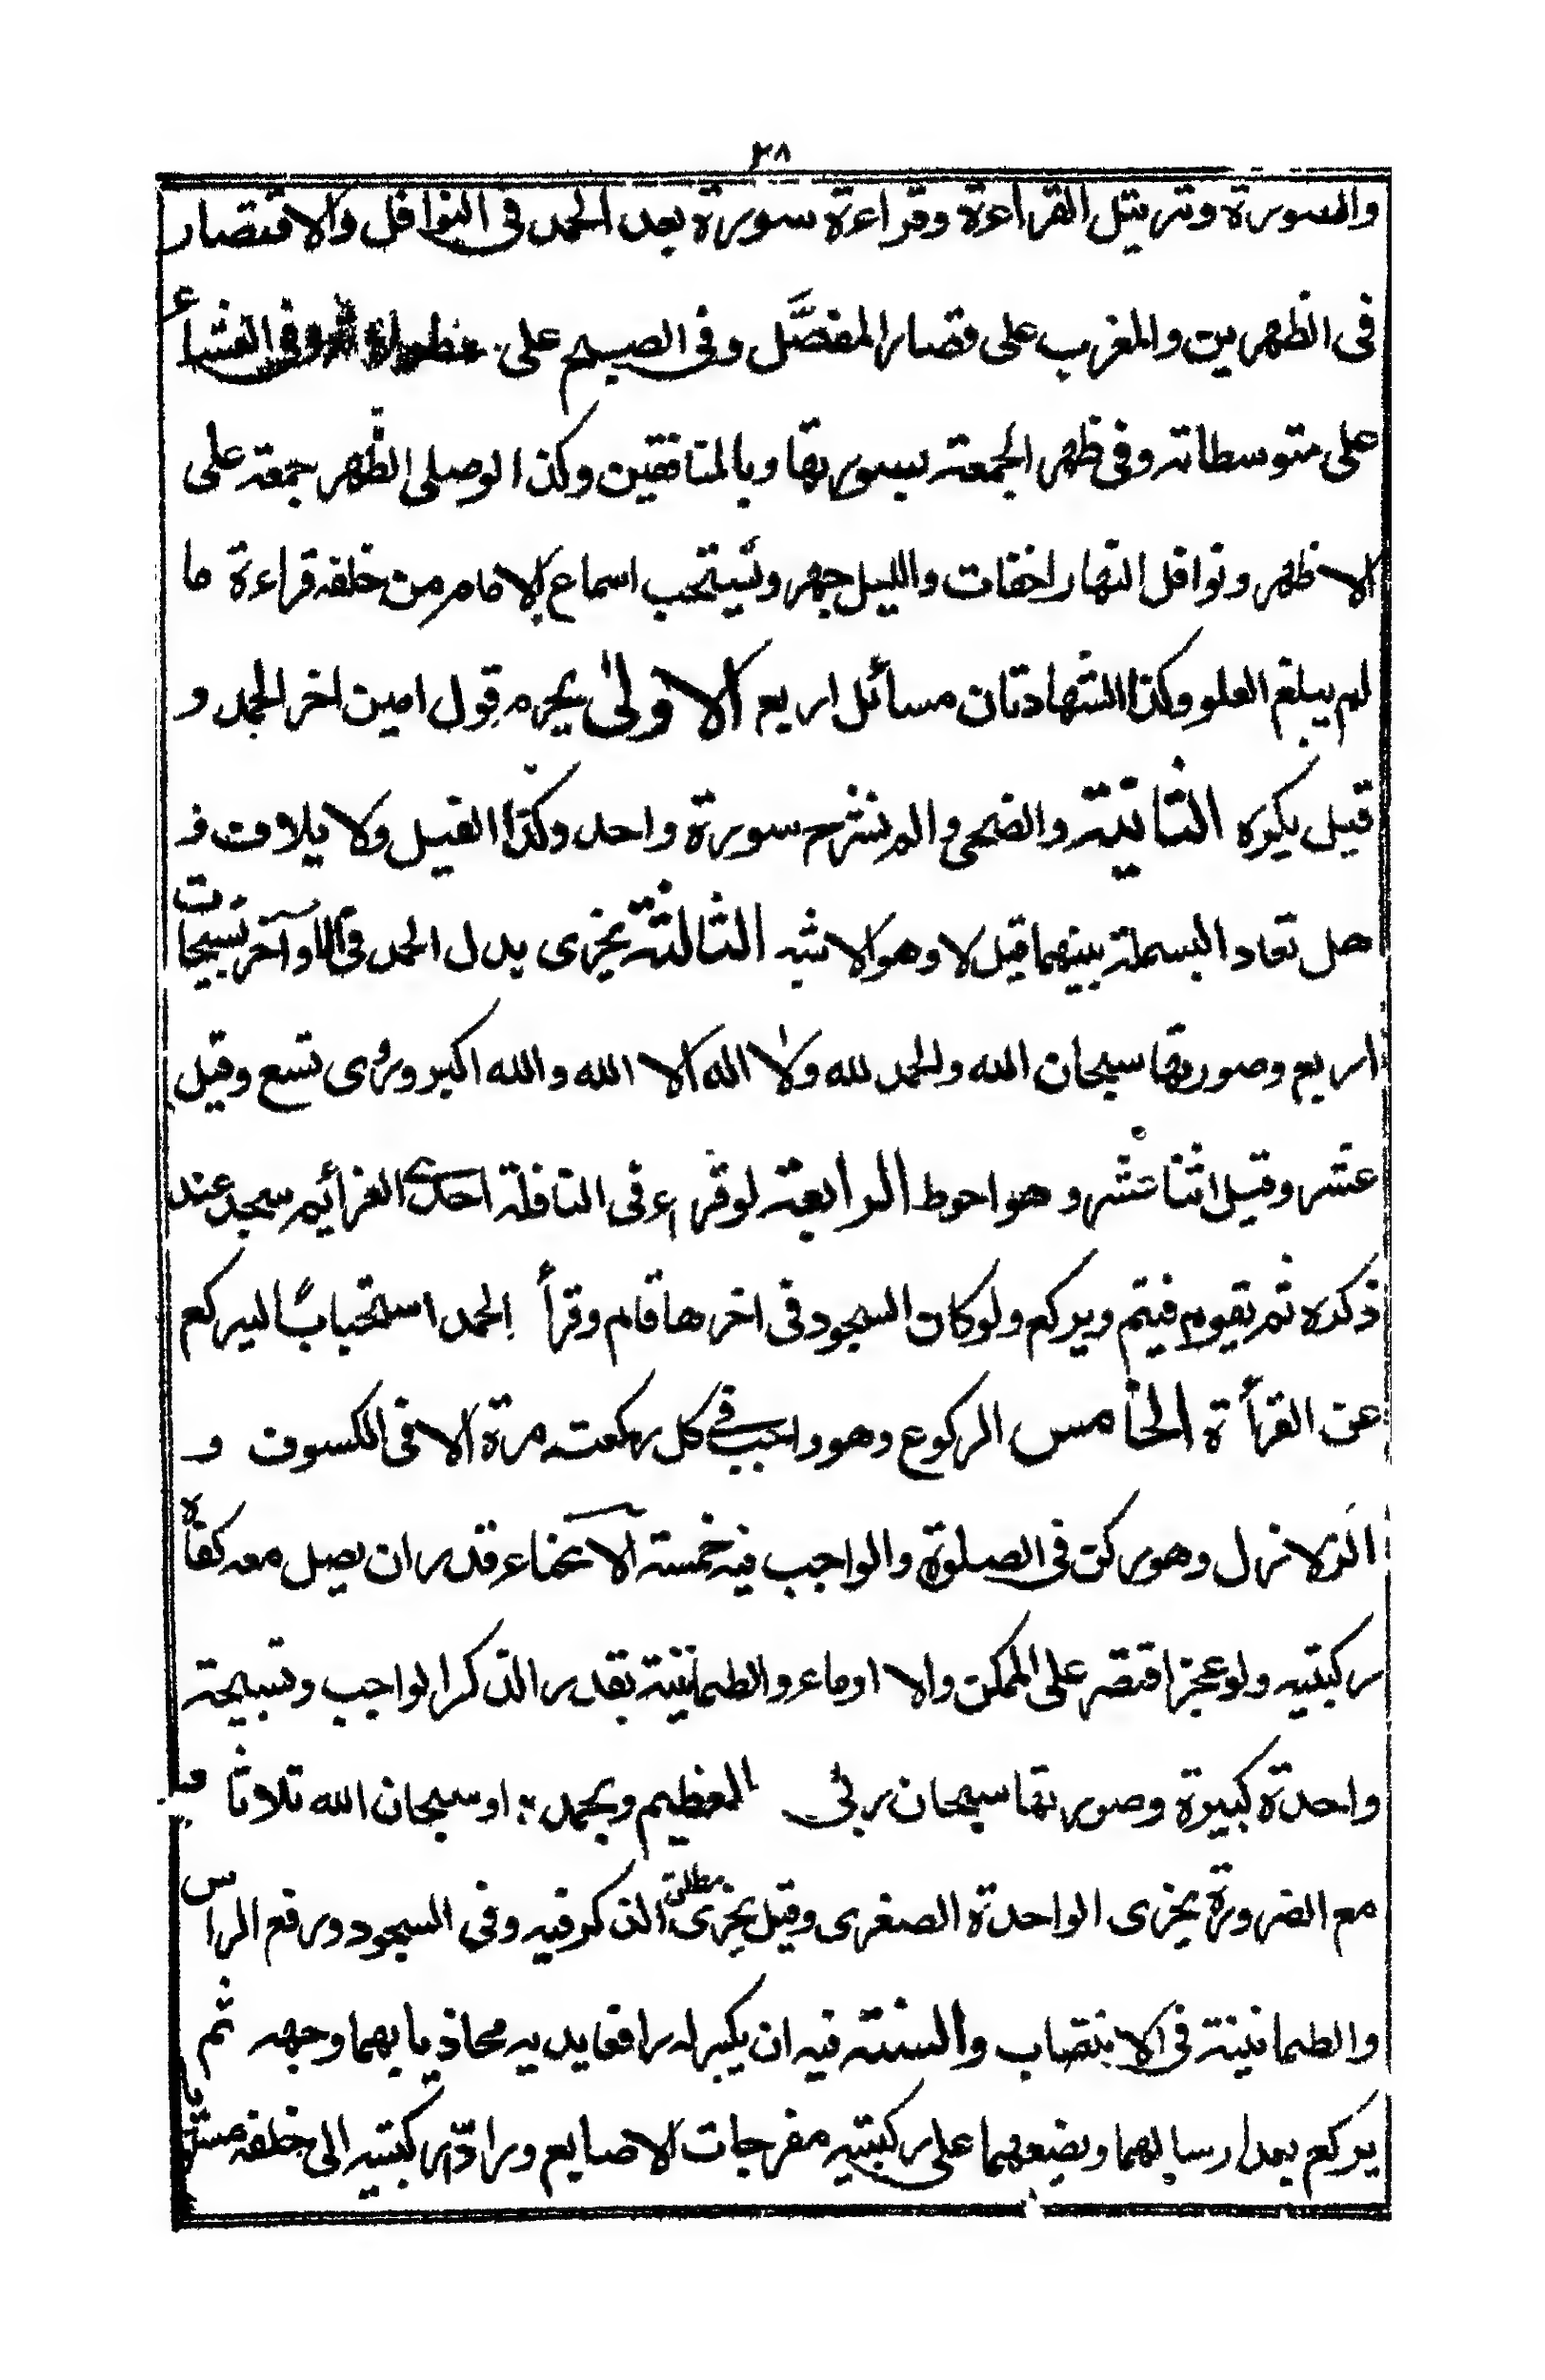 ٢٨
والسورة وترتيل القراءة وقراءة سورة بعد الحمد فى النوافل والاقتصار
فى الظهرين والمغرب على قصار المفصَّل وفى الصبح على مطولاته وفى العشاء
على متوسطاته وفى ظهر الجمعة بسورتها وبالمنافقين وكذا لوصلى الظهر جمعة على
الاظهر ونوافل النهار اخفات والليل جهر ويستحب اسماع الامام من خلفه قراءة ما
لم يبلغ العلو وكذا الشهادتان مسائل اربع الاولىٰ يحرم قول امين اخر الحمد و
قيل يكره الثانية والضحى والم نشرح سورة واحد وكذا الفيل ولايلاف و
هل تعاد البسملة بينهما قيل لا وهو الاشبه الثالثة يجزى بدل الحمد فى الاوآخر تسبيحات
اربع وصورتها سبحان الله والحمد لله ولا اله الا الله والله اكبر وروى تسع وقيل
عشر وقيل اثنا عشر وهو احوط الرابعة لو قرءِ فى النافلة احدى العزائيم سجد عند
ذكره ثم يقوم فيتم ويركع ولو كان السجود فى اخرها قام وقرأ الحمد استحبابًا ليركع
عن القرأة الخامس الركوع وهو واجب فى كل ركعة مرة الا فى الكسوف و
الزلازل وهو ركن فى الصلوة والواجب فيه خمسة الآنحناء قدر ان يصل معه كفاه
ركبتيه ولو عجز اقتصر على الممكن والا اوماء والطمانينة بقدر الذكر الواجب وتسبيحة
واحدة كبيرة وصورتها سبحان ربى العظيم وبحمده او سبحان الله ثلاثا و
مع الضرورة يجزى الواحدة الصغرى وقيل يجزى مطلق الذكر فيه وفى السجود ورفع الراس
والطمانينة فى الانتصاب والسنة فيه ان يكبر له رافعا يديه محاذيا بهما وجهه ثم
يركع بعد ارسالهما ويضعهما على ركبتيه مفرجات الاصابع ورادّا ركبتيه الى خلفه مستويا